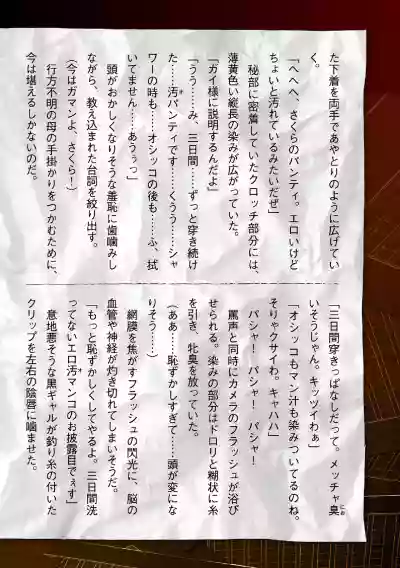 た下着を両手であやとりのように広げてい
く。
「へへへ、さくらのパンティ。エロいけど
ちょいと汚れているみたいだぜ」
秘部に密着していたクロッチ部分には、
薄黄色い縦長の染みが広がっていた。
「ガイ様に説明するんだよ」
「うう……み、三日間……ずっと穿き続け
た……汚パンティです……くうう……シャ
ワーの時も……オシッコの後も……ふ、拭
いてません……あうぅっ」
頭がおかしくなりそうな羞恥に歯噛みし
ながら、教え込まれた台詞を絞り出す。
(今はガマンよ、さくら!)
行方不明の母の手掛かりをつかむために、
今は堪えるしかないのだ。
「三日間穿きっぱなしだって。メッチャ臭
にお
いそうじゃん。キッツイわぁ」
「オシッコもマン汁も染みついてるのね。
そりゃクサイわ。キャハハ」
パシャ! パシャ! パシャ!
罵声と同時にカメラのフラッシュが浴び
せられる。染みの部分はドロリと糊状に糸
を引き、牝臭を放っていた。
(ああ……恥ずかしすぎて……頭が変にな
りそう……)
網膜を焦がすフラッシュの閃光に、脳の
血管や神経が灼き切れてしまいそうだ。
「もっと恥ずかしくしてやるよ。三日間洗
ってないエロ汚マンコのお披露目でぇす」
意地悪そうな黒ギャルが釣り糸の付いた
クリップを左右の陰唇に噛ませた。